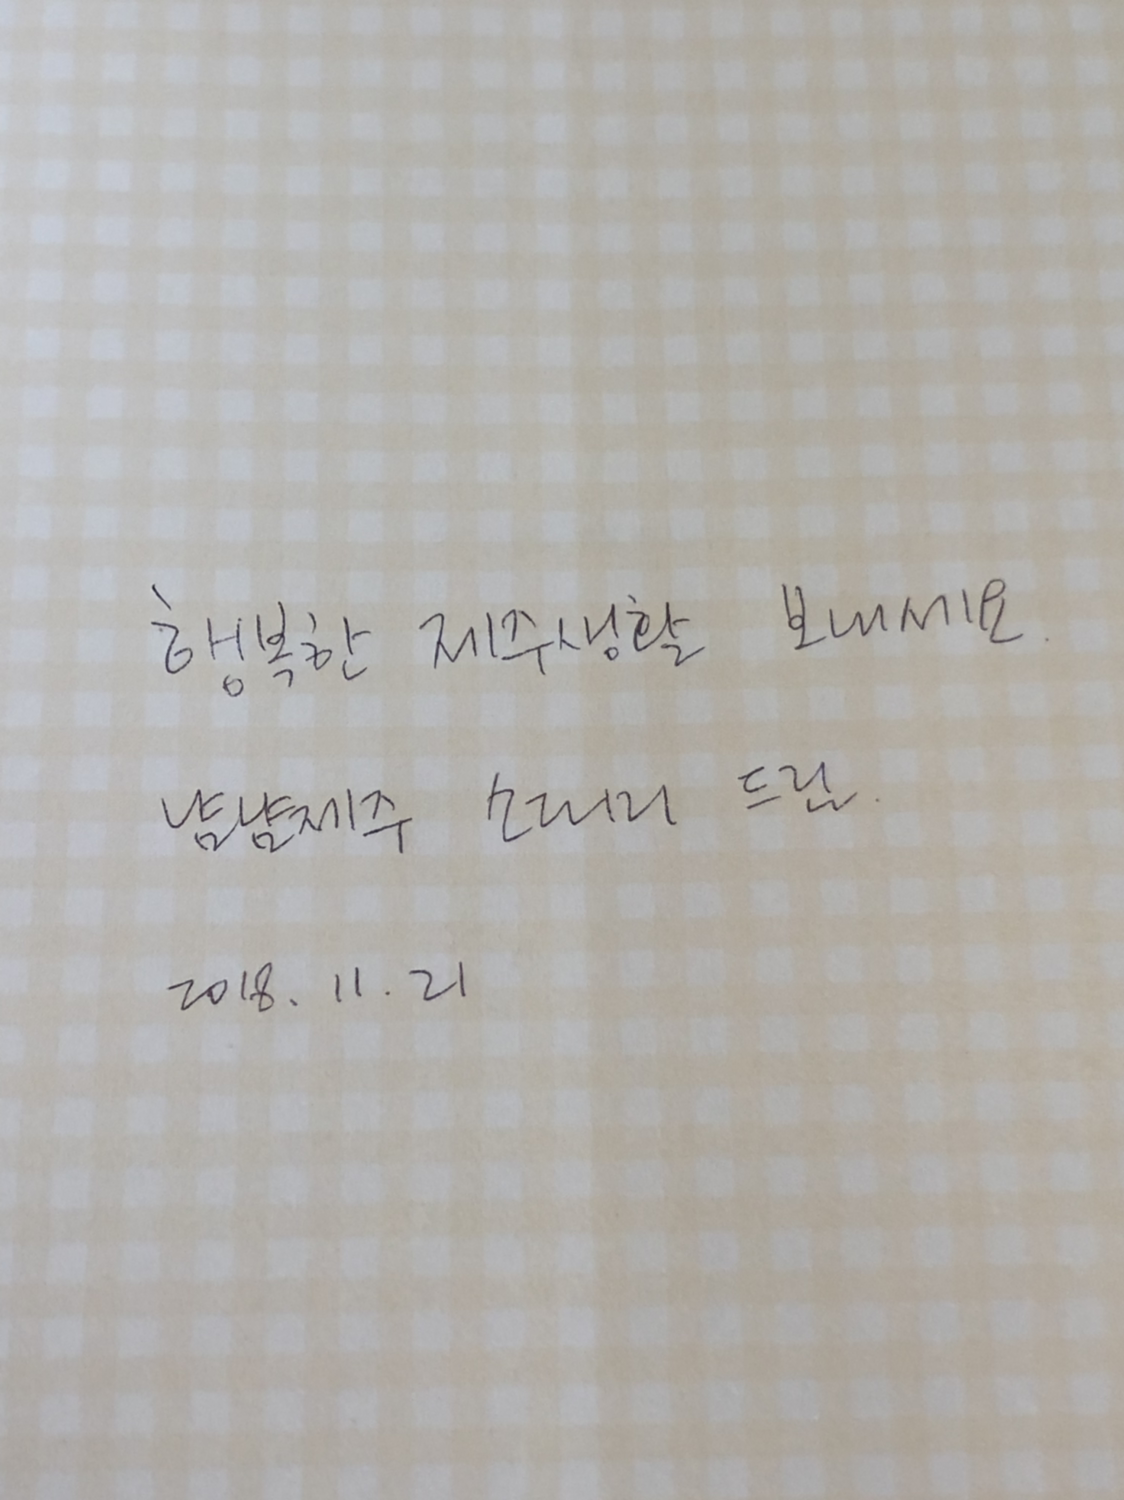 행복한 제주생활 보내세요.
냠냠제주 드림.
2018. 11. 21